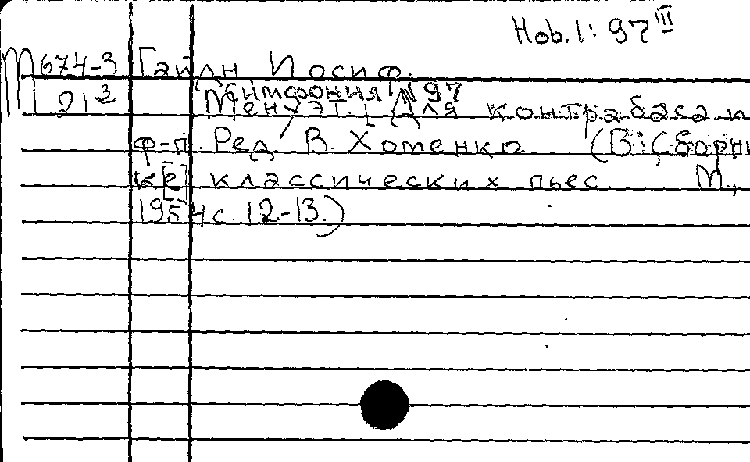 Hob. I: 97 III
М 674-3 Гайдн Иосиф.
Симфония N 97
91³ Менуэт. [Для контрабаса и
ф-п. Ред. В. Хоменко (В: Сборни
к[е] классических пьес М.,
1954 с. 12-13.)